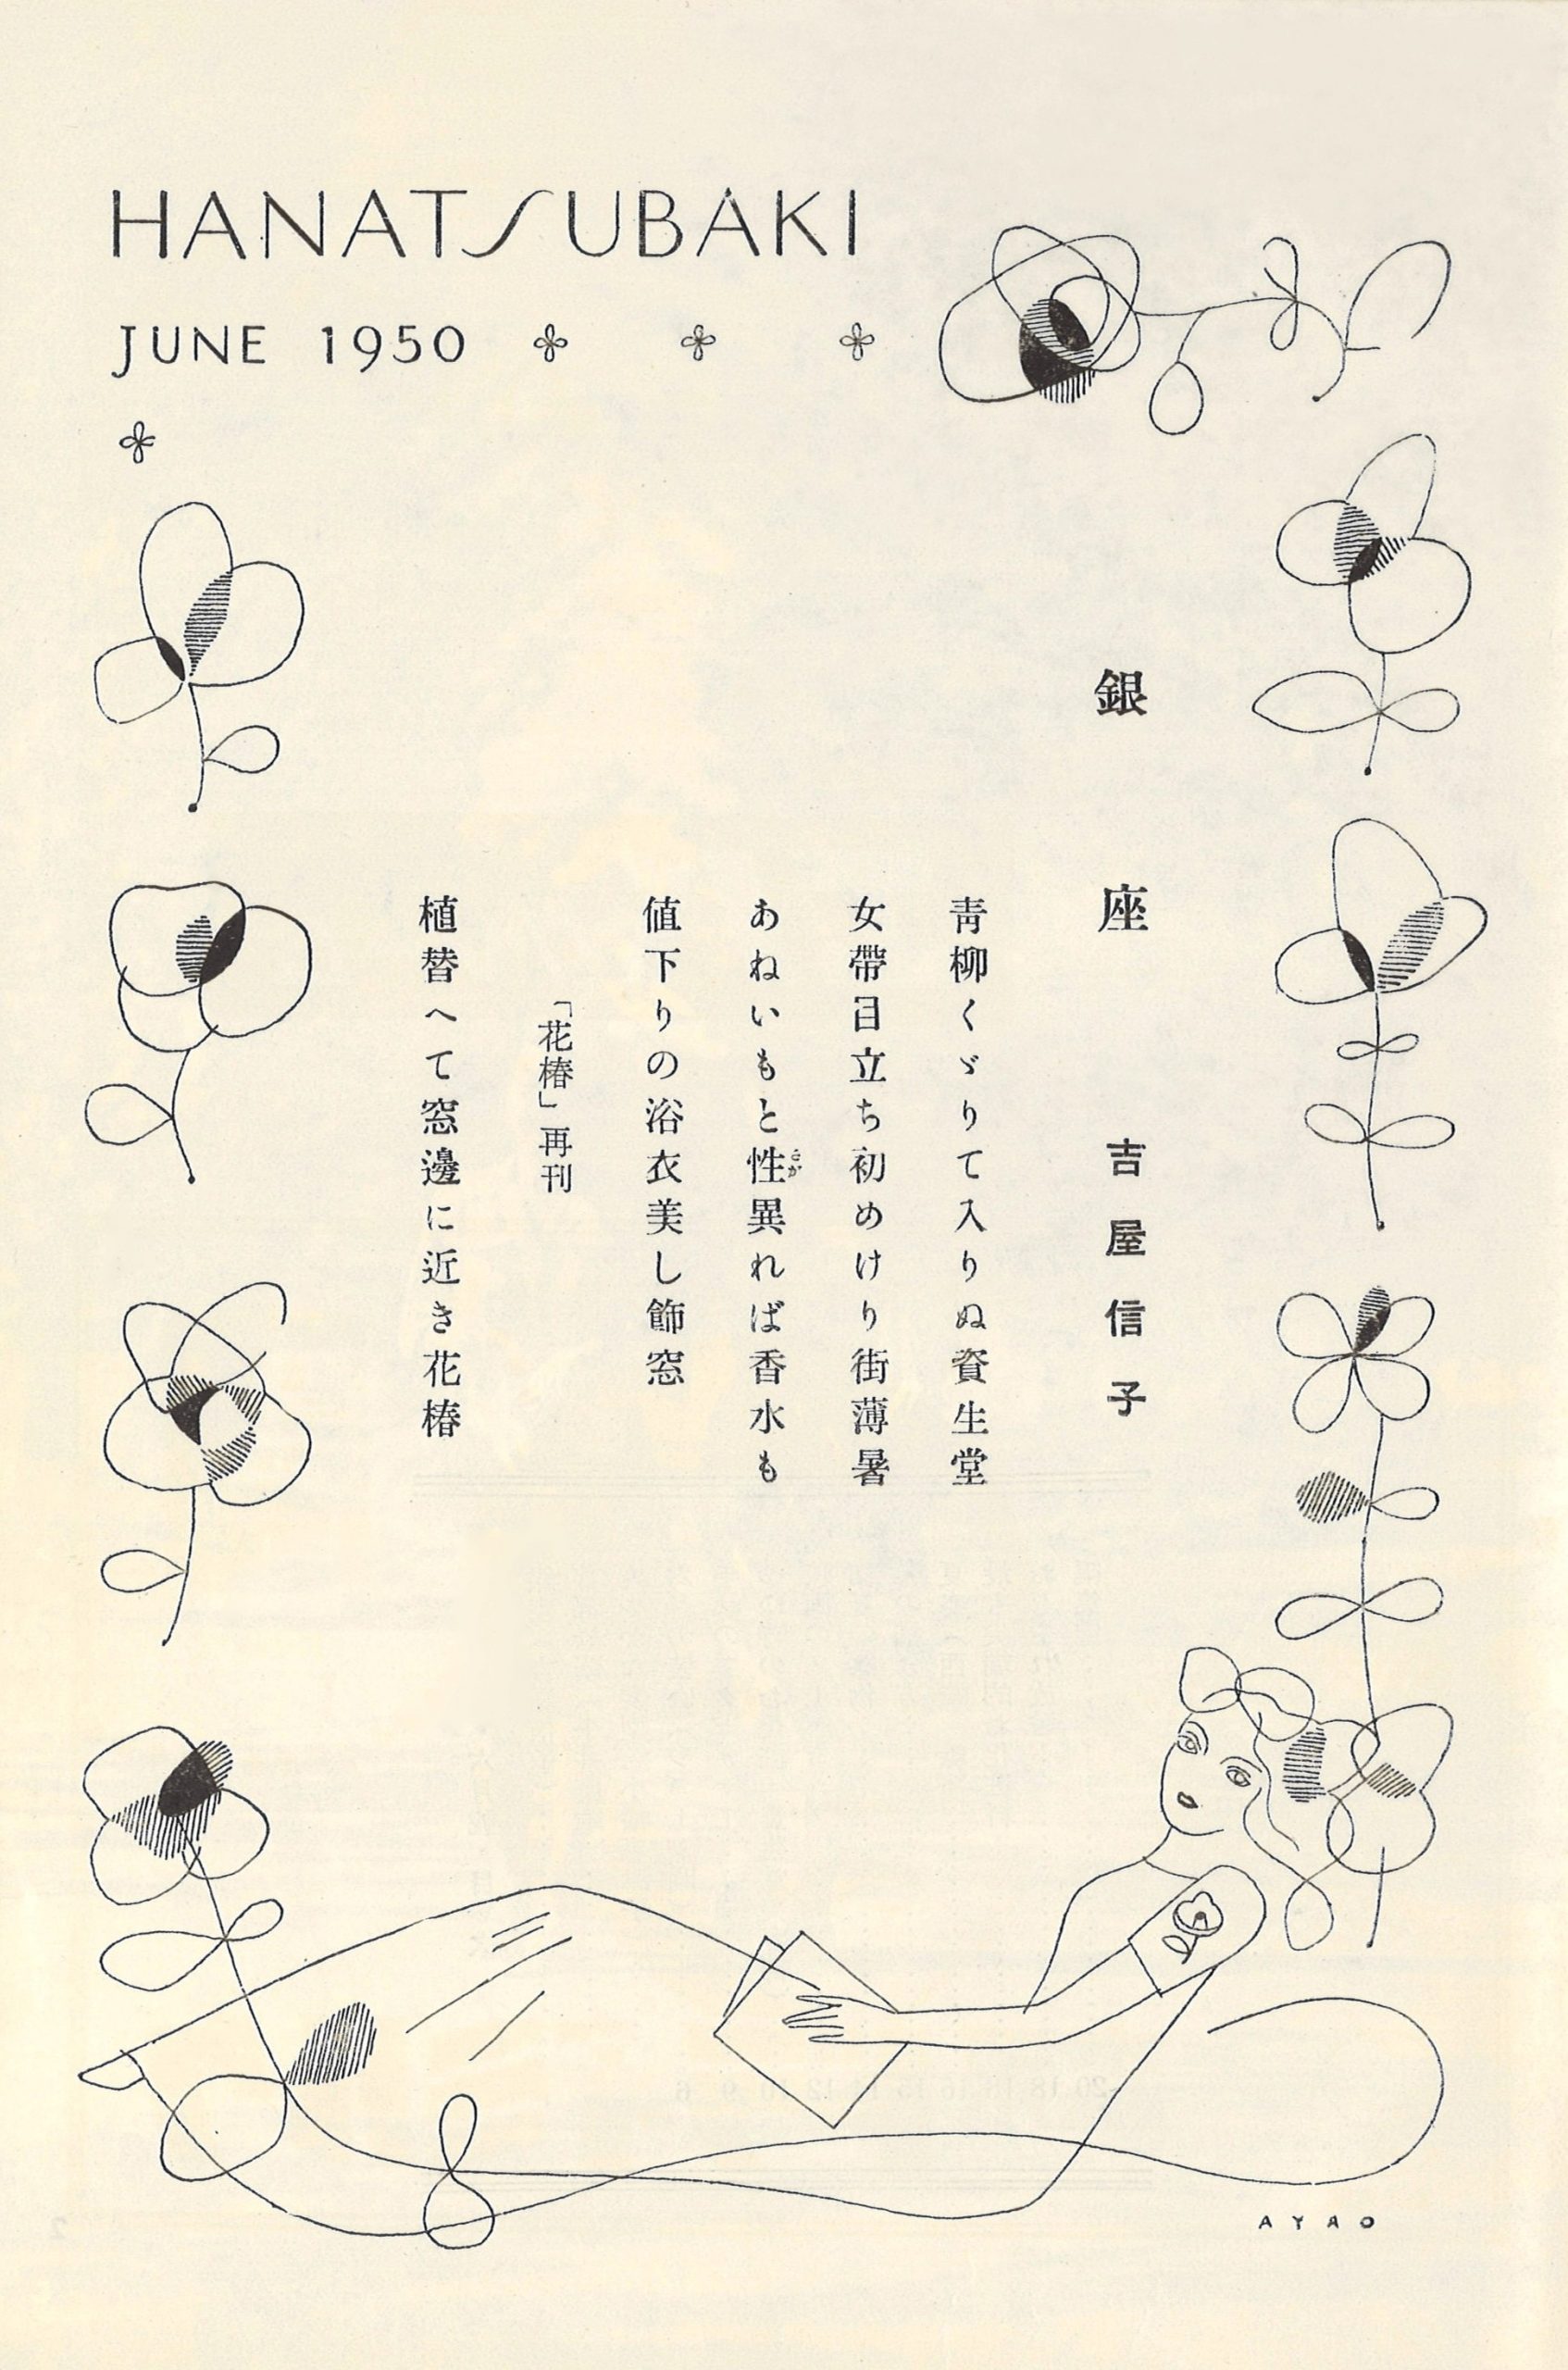 HANATSUBAKI
JUNE 1950
銀座
吉屋信子
靑柳くゞりて入りぬ資生堂
女帶目立ち初めけり街薄暑
あねいもと性異れば香水も
さが
値下りの浴衣美し飾窓
「花椿」再刊
植替へて窓邊に近き花椿
AYAO